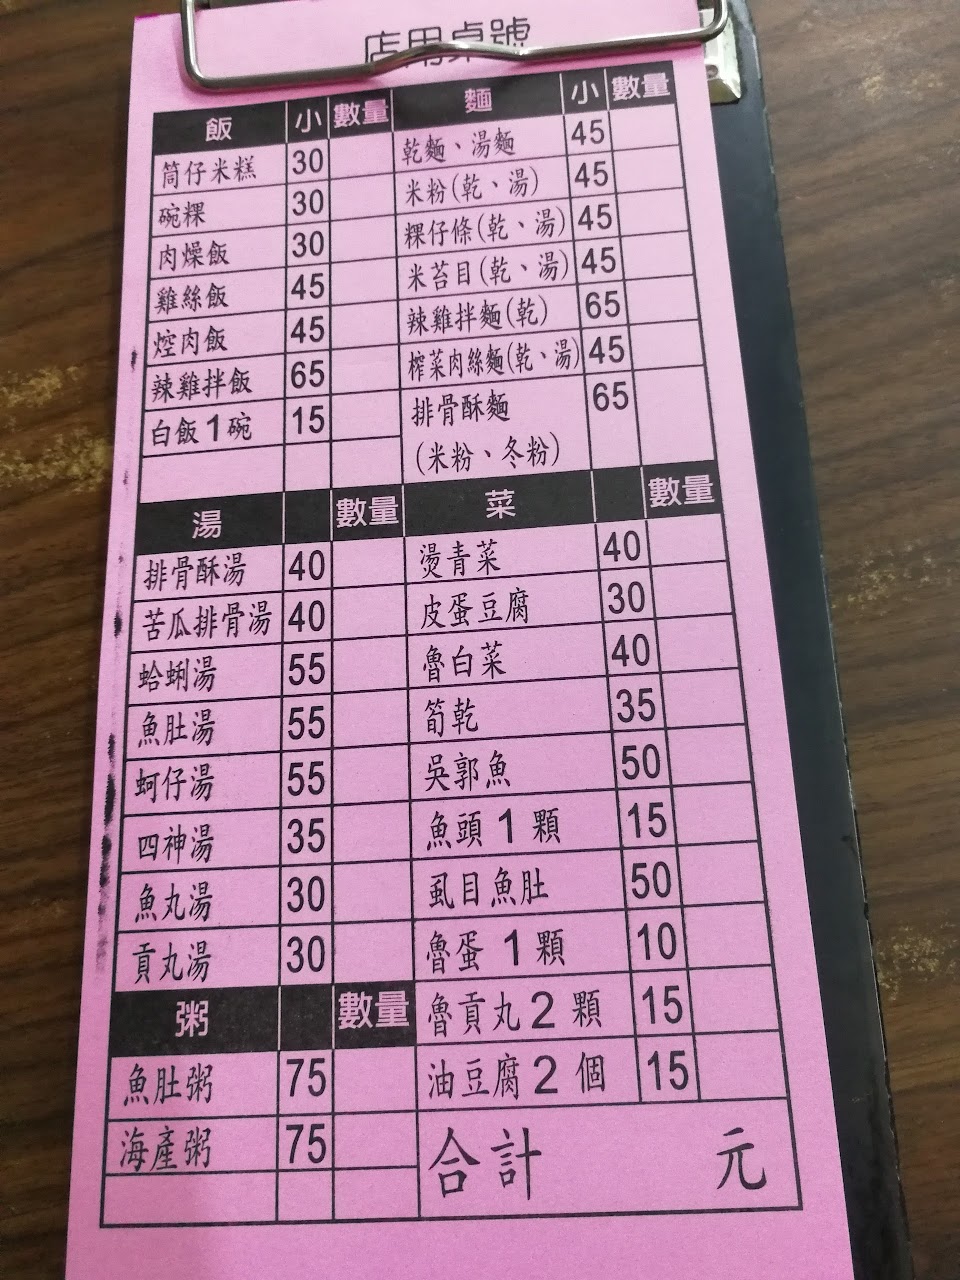 店用桌號
飯 小 數量 麵 小 數量
筒仔米糕 30 乾麵、湯麵 45
碗粿 30 米粉(乾、湯) 45
肉燥飯 30 粿仔條(乾、湯) 45
雞絲飯 45 米苔目(乾、湯) 45
焢肉飯 45 辣雞拌麵(乾) 65
辣雞拌飯 65 榨菜肉絲麵(乾、湯) 45
白飯1碗 15 排骨酥麵 65
(米粉、冬粉)
湯 數量 菜 數量
排骨酥湯 40 燙青菜 40
苦瓜排骨湯 40 皮蛋豆腐 30
蛤蜊湯 55 魯白菜 40
魚肚湯 55 筍乾 35
蚵仔湯 55 吳郭魚 50
四神湯 35 魚頭1顆 15
魚丸湯 30 虱目魚肚 50
貢丸湯 30 魯蛋1顆 10
粥 數量 魯貢丸2顆 15
魚肚粥 75 油豆腐2個 15
海產粥 75 合計 元